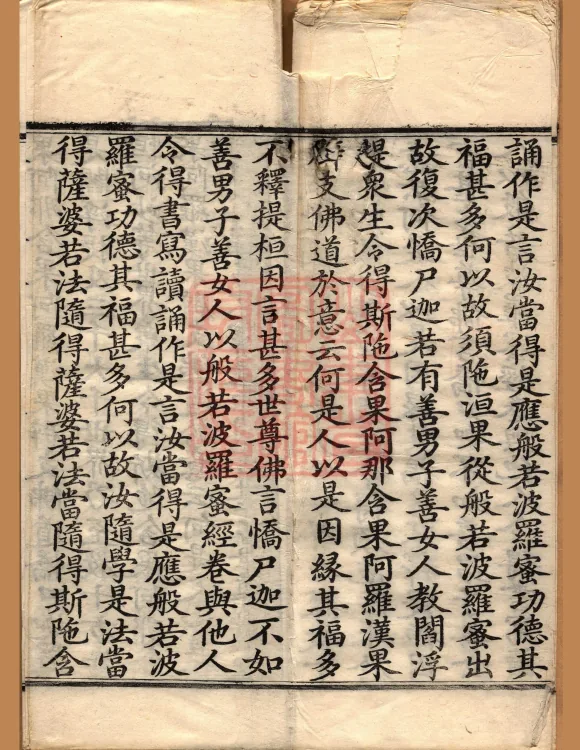 誦作是言汝當得是應般若波羅蜜功德其
福甚多何以故須陁洹果從般若波羅蜜出
故復次憍尸迦若有善男子善女人教閻浮
提衆生令得斯陁含果阿那含果阿羅漢果
辟支佛道於意云何是人以是因縁其福多
不釋提桓因言甚多世尊佛言憍尸迦不如
善男子善女人以般若波羅蜜經卷與他人
令得書寫讀誦作是言汝當得是應般若波
羅蜜功德其福甚多何以故汝隨學是法當
得薩婆若法隨得薩婆若法當隨得斯陁含